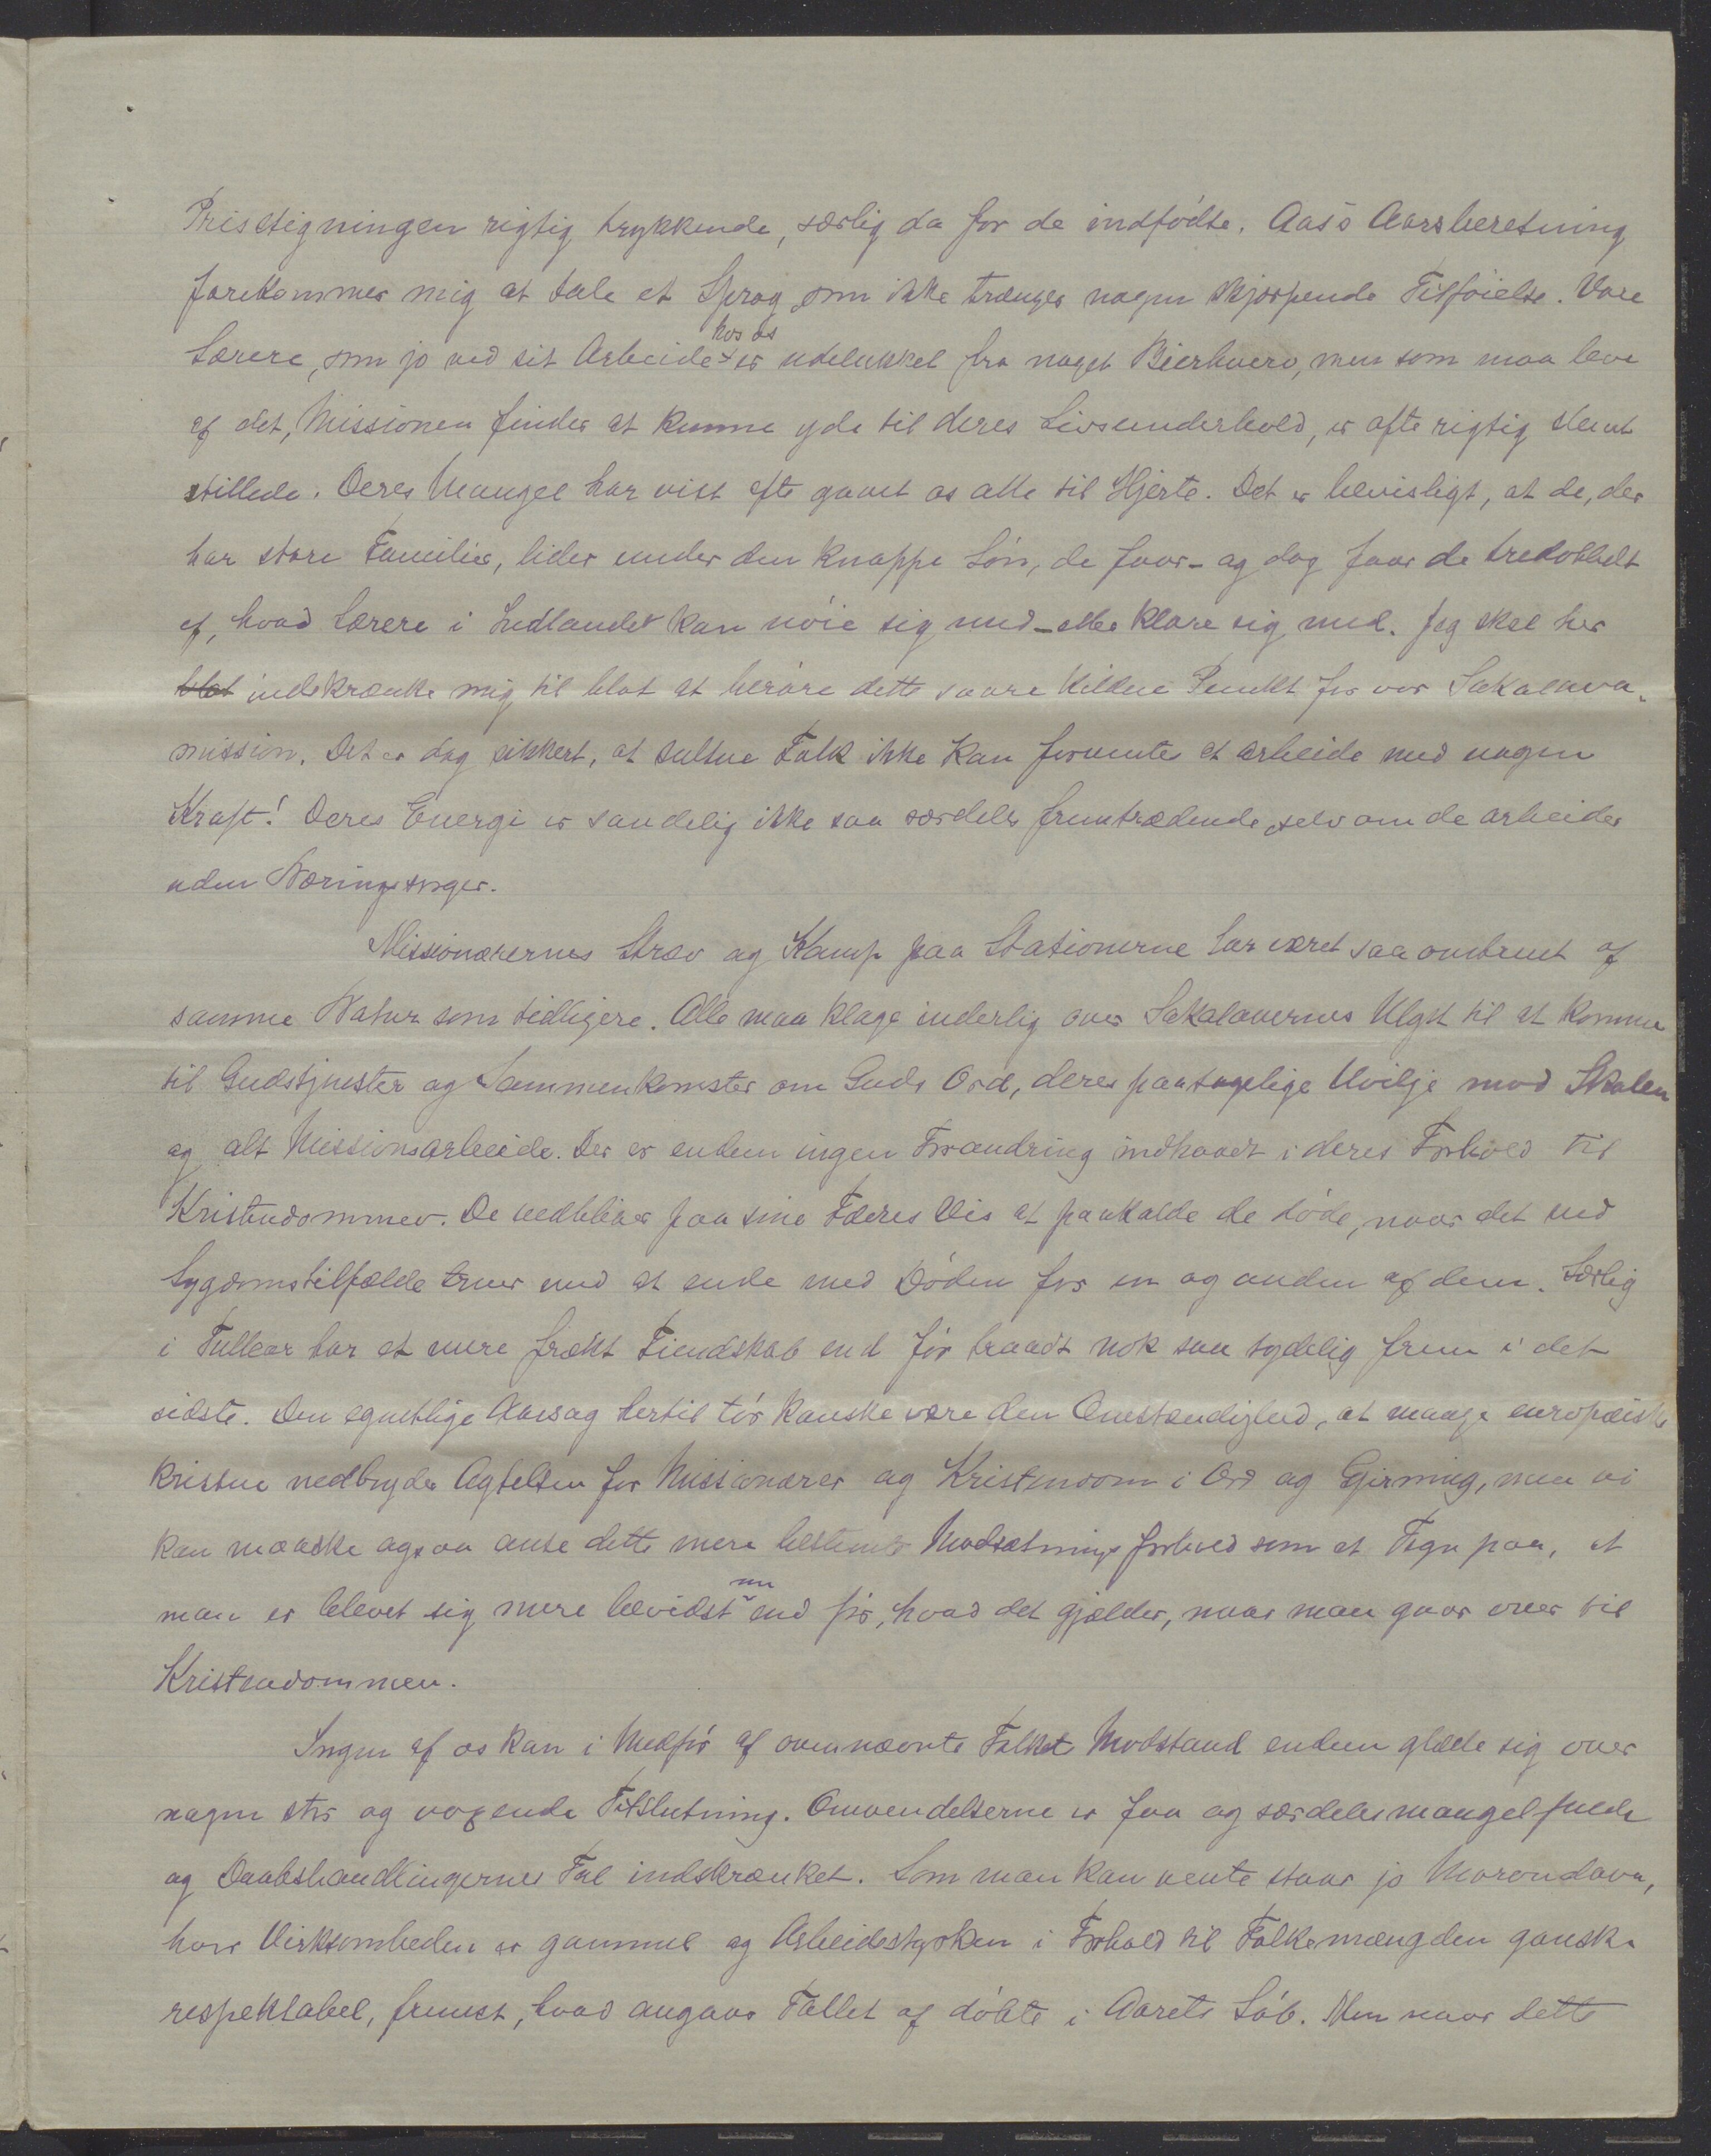 Prisstigningen rigtig trykkende, særlig da for de indfødte. Aas's Aarsberetning
forekommer mig at tale et Sprog som ikke trænger nogen skjærpende Tilføielse. Vore
Lærere, som jo ved sit Arbeide hos os er udelukket fra noget Bierhverv, men som maa leve
af det, Missionen finder at kunne yde til deres Livsunderhold, er ofte rigtig slemt
stillede. Deres Mangel har vist ofte gaaet os alle til Hjerte. Det er bevisligt, at de, der
har store Familier, lider under den knappe Løn, de faar - og dog faar de tredobbelt
af, hvad Lærere i Indlandet kan nøie sig med - eller klare sig med. Jeg skal her
blot indskrænke mig til blot at berøre dette saare kildne Punkt for vor Sakalava-
mission. Det er dog sikkert, at sultne Folk ikke kan forventes at arbeide med nogen
Kraft! Deres Energi er sandelig ikke saa særdeles fremtrædende, selv om de arbeider
uden Næringssorger.
Missionærernes Stræv og Kamp paa Stationerne har været saa omtrent af
samme Natur som tidligere. Alle maa klage inderlig over Sakalavernes Ulyst til at komme
til Gudstjenester og Sammenkomster om Guds Ord, deres paatagelige Uvilje mod Skolen
og alt Missionsarbeide. Der er endnu ingen Forandring indtraadt i deres Forhold til
Kristendommen. De vedbliver paa sine Fædres Vis at paakalde de døde, naar det ved
Sygdomstilfælde truer med at ende med Døden for en og anden af dem. Særlig
i Tullear har et mere frækt Fiendskab end før traadt nok saa tydelig frem i det
sidste. Den egentlige Aarsag hertil tør kanske være den Omstændighed, at mange europæiske
kristne nedbryder Agtelsen for Missionærer og Kristendom i Ord og Gjerning, men vi
kan maaske ogsaa anse dette mere bestemte Modsætningsforhold som et Tegn paa, at
man er blevet sig mere bevidst nu end før, hvad det gjælder, naar man gaar over til
Kristendommen.
Ingen af os kan i Medfør af ovennævnte Folkets Modstand endnu glæde sig over
nogen stor og voxende Tilslutning. Omvendelserne er faa og særdeles mangelfulde
og Daabshandlingernes Tal indskrænket. Som man kan vente staar jo Morondava,
hvor Virksomheden er gammel og Arbeidsstyrken i Forhold til Folkemængden ganske
respektabel, fremst, hvad angaar Tallet af døbte i Aarets Løb. Men naar dette